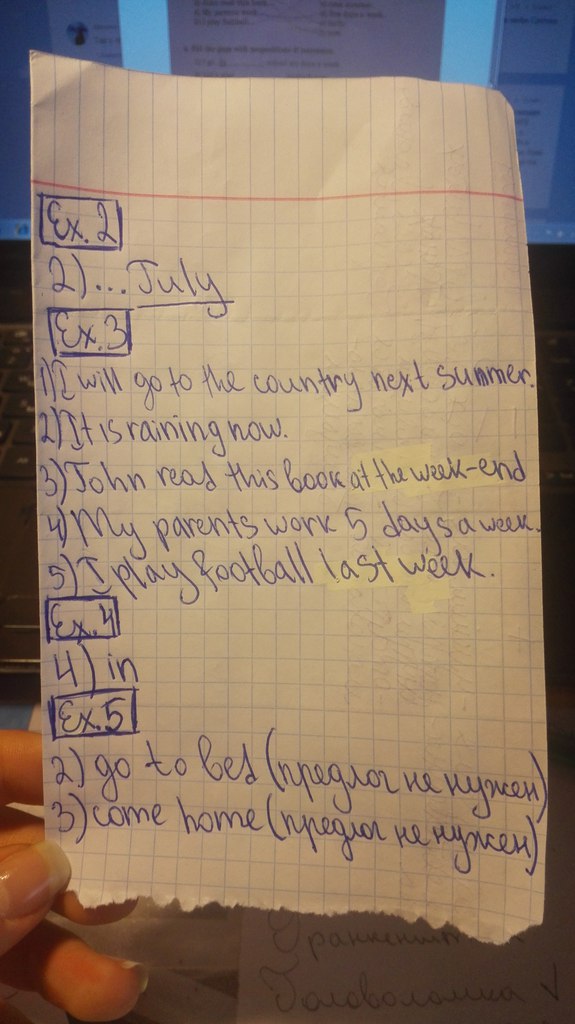 Ex.2
2)... July
Ex.3
1) I will go to the country next summer.
2) It is raining now.
3) John read this book at the week-end
4) My parents work 5 days a week.
5) I play football last week.
Ex.4
4) in
Ex.5
2) go to bed (предлог не нужен)
3) come home (предлог не нужен)
Головоломка